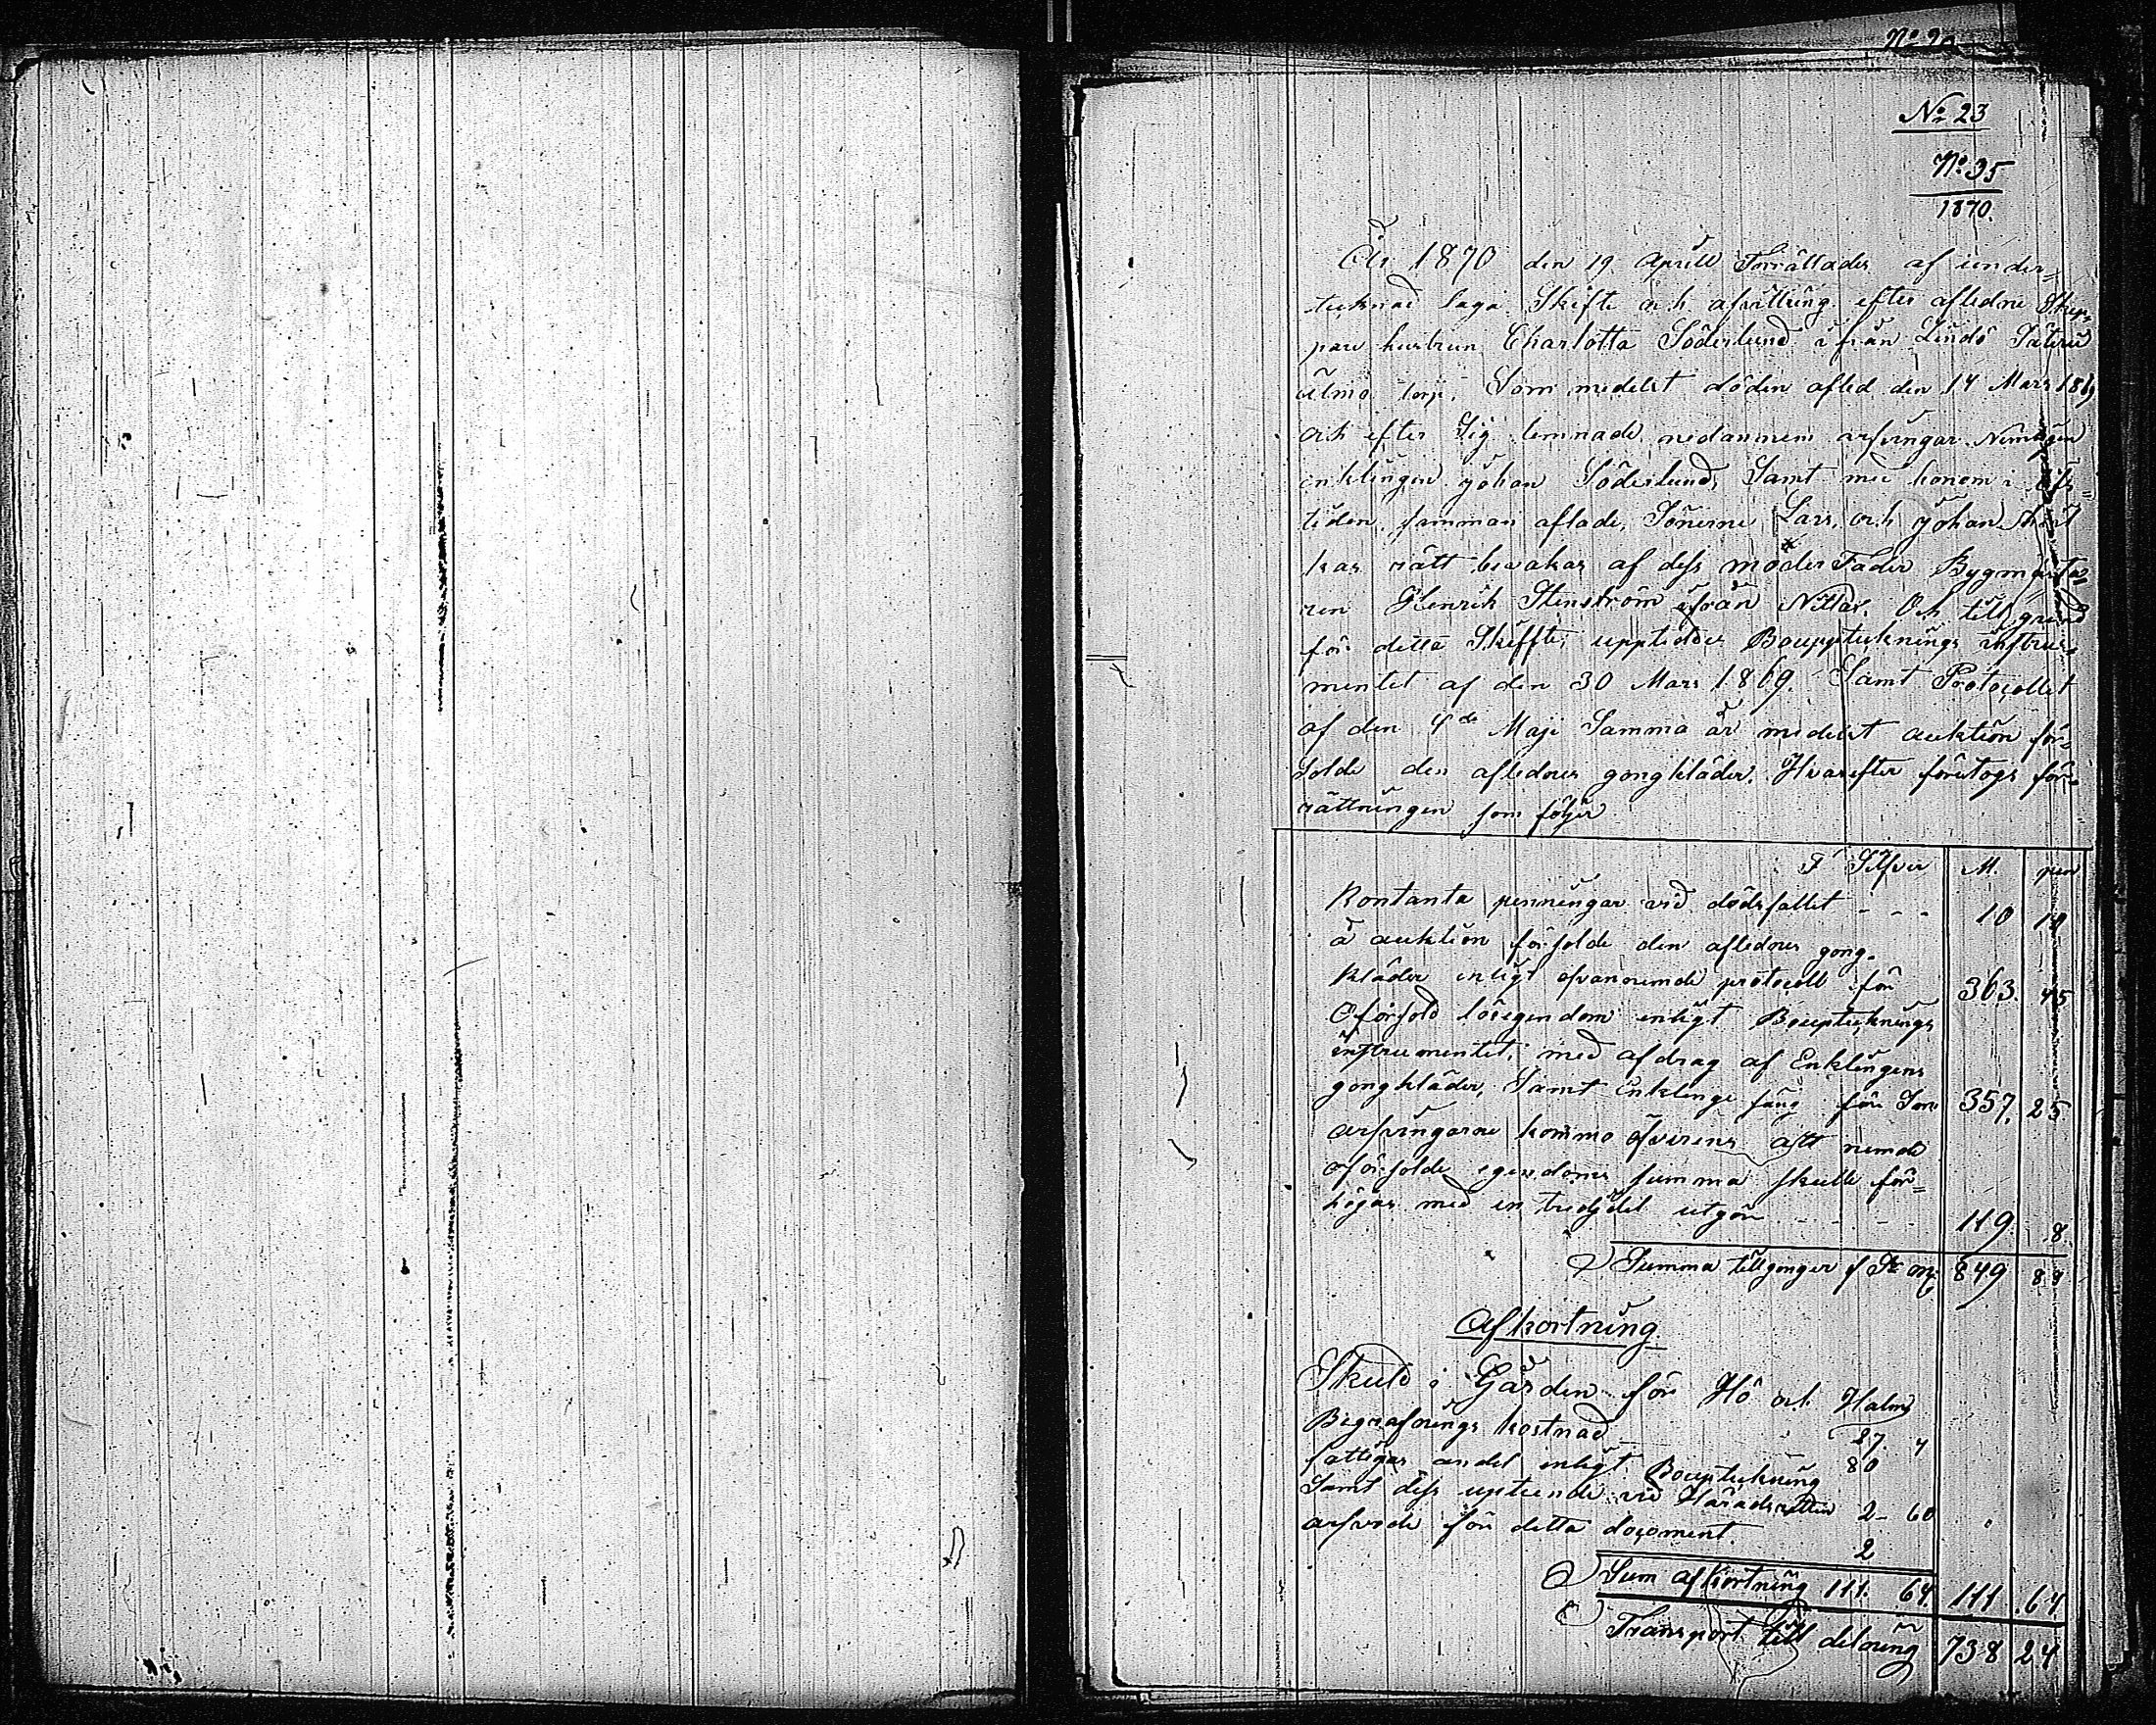 No 23
No 35
1870.
År 1870 den 19 Aprill Förrättades af under=
tecknad laga Skifte och afvittring efter aflidne Skep=
pare hustrun Charlotta Söderlund ifrån Lindö Säteri
torp. Som medelst döden afled den 14 Mars 1869
och efter Sig lemnade nedannemd arfvingar Nemligen
enklingen Johan Söderlund, Samt med honom i lifs=
tiden samman aflade, Sönerne Lars, och Johan
kas rätt bevakas af dess moder Fader Bygmästa=
ren Henrik Stenström ifrån Och till grund
för detta Skiffte, upptedder Boupptecknings instru=
mentet af den 30 Mars 1869. Samt Protocollet
af den 4de Maji Samma år medelst auktion för=
solde den aflednes gongkläder. Hvarefter företogs för=
rättningen som följer
I Silfver M. pen
Kontanta penningar vid dödsfallet - - - 10
å auktion försolde den aflednes gong=
kläder enligt ofvannemde protocoll för 363. 45
Oförsold lösegendom enligt Bouptecknings
instrumentet, med afdrag af Enklingens
gongkläder, Samt Enklinge fång för Som 357. 25
arfvingarne kommo öfverens att nemde
oförsolde egendoms summa skulle för=
högas med en tredjedel utgör - - - 119. 8
Summa tillgonger 849
Afkortning
Skuld i Gården för Hö och Halm 27. 4
Begrafnings kostnad 80
fattigas andel enligt Bouptekning
Samt dess upteende vid Häradsrätten 2- 60
arfvode för detta document. 2
Sum afkortning 111. 64 111. 64
Transport till delning 738 24